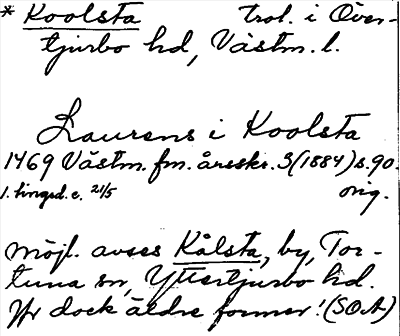 * Koolsta trol. i Över-
tjurbo hd, Västm. l.
Laurens i Koolsta
1469 Västm. fm. årsskr. 3 (1884) s. 90.
1. tingsd. e. 21/5 orig.
Möjl. avses Kålsta, by, Tor-
tuna sn, Yttertjurbo hd.
Jfr dock äldre former! (SOA)